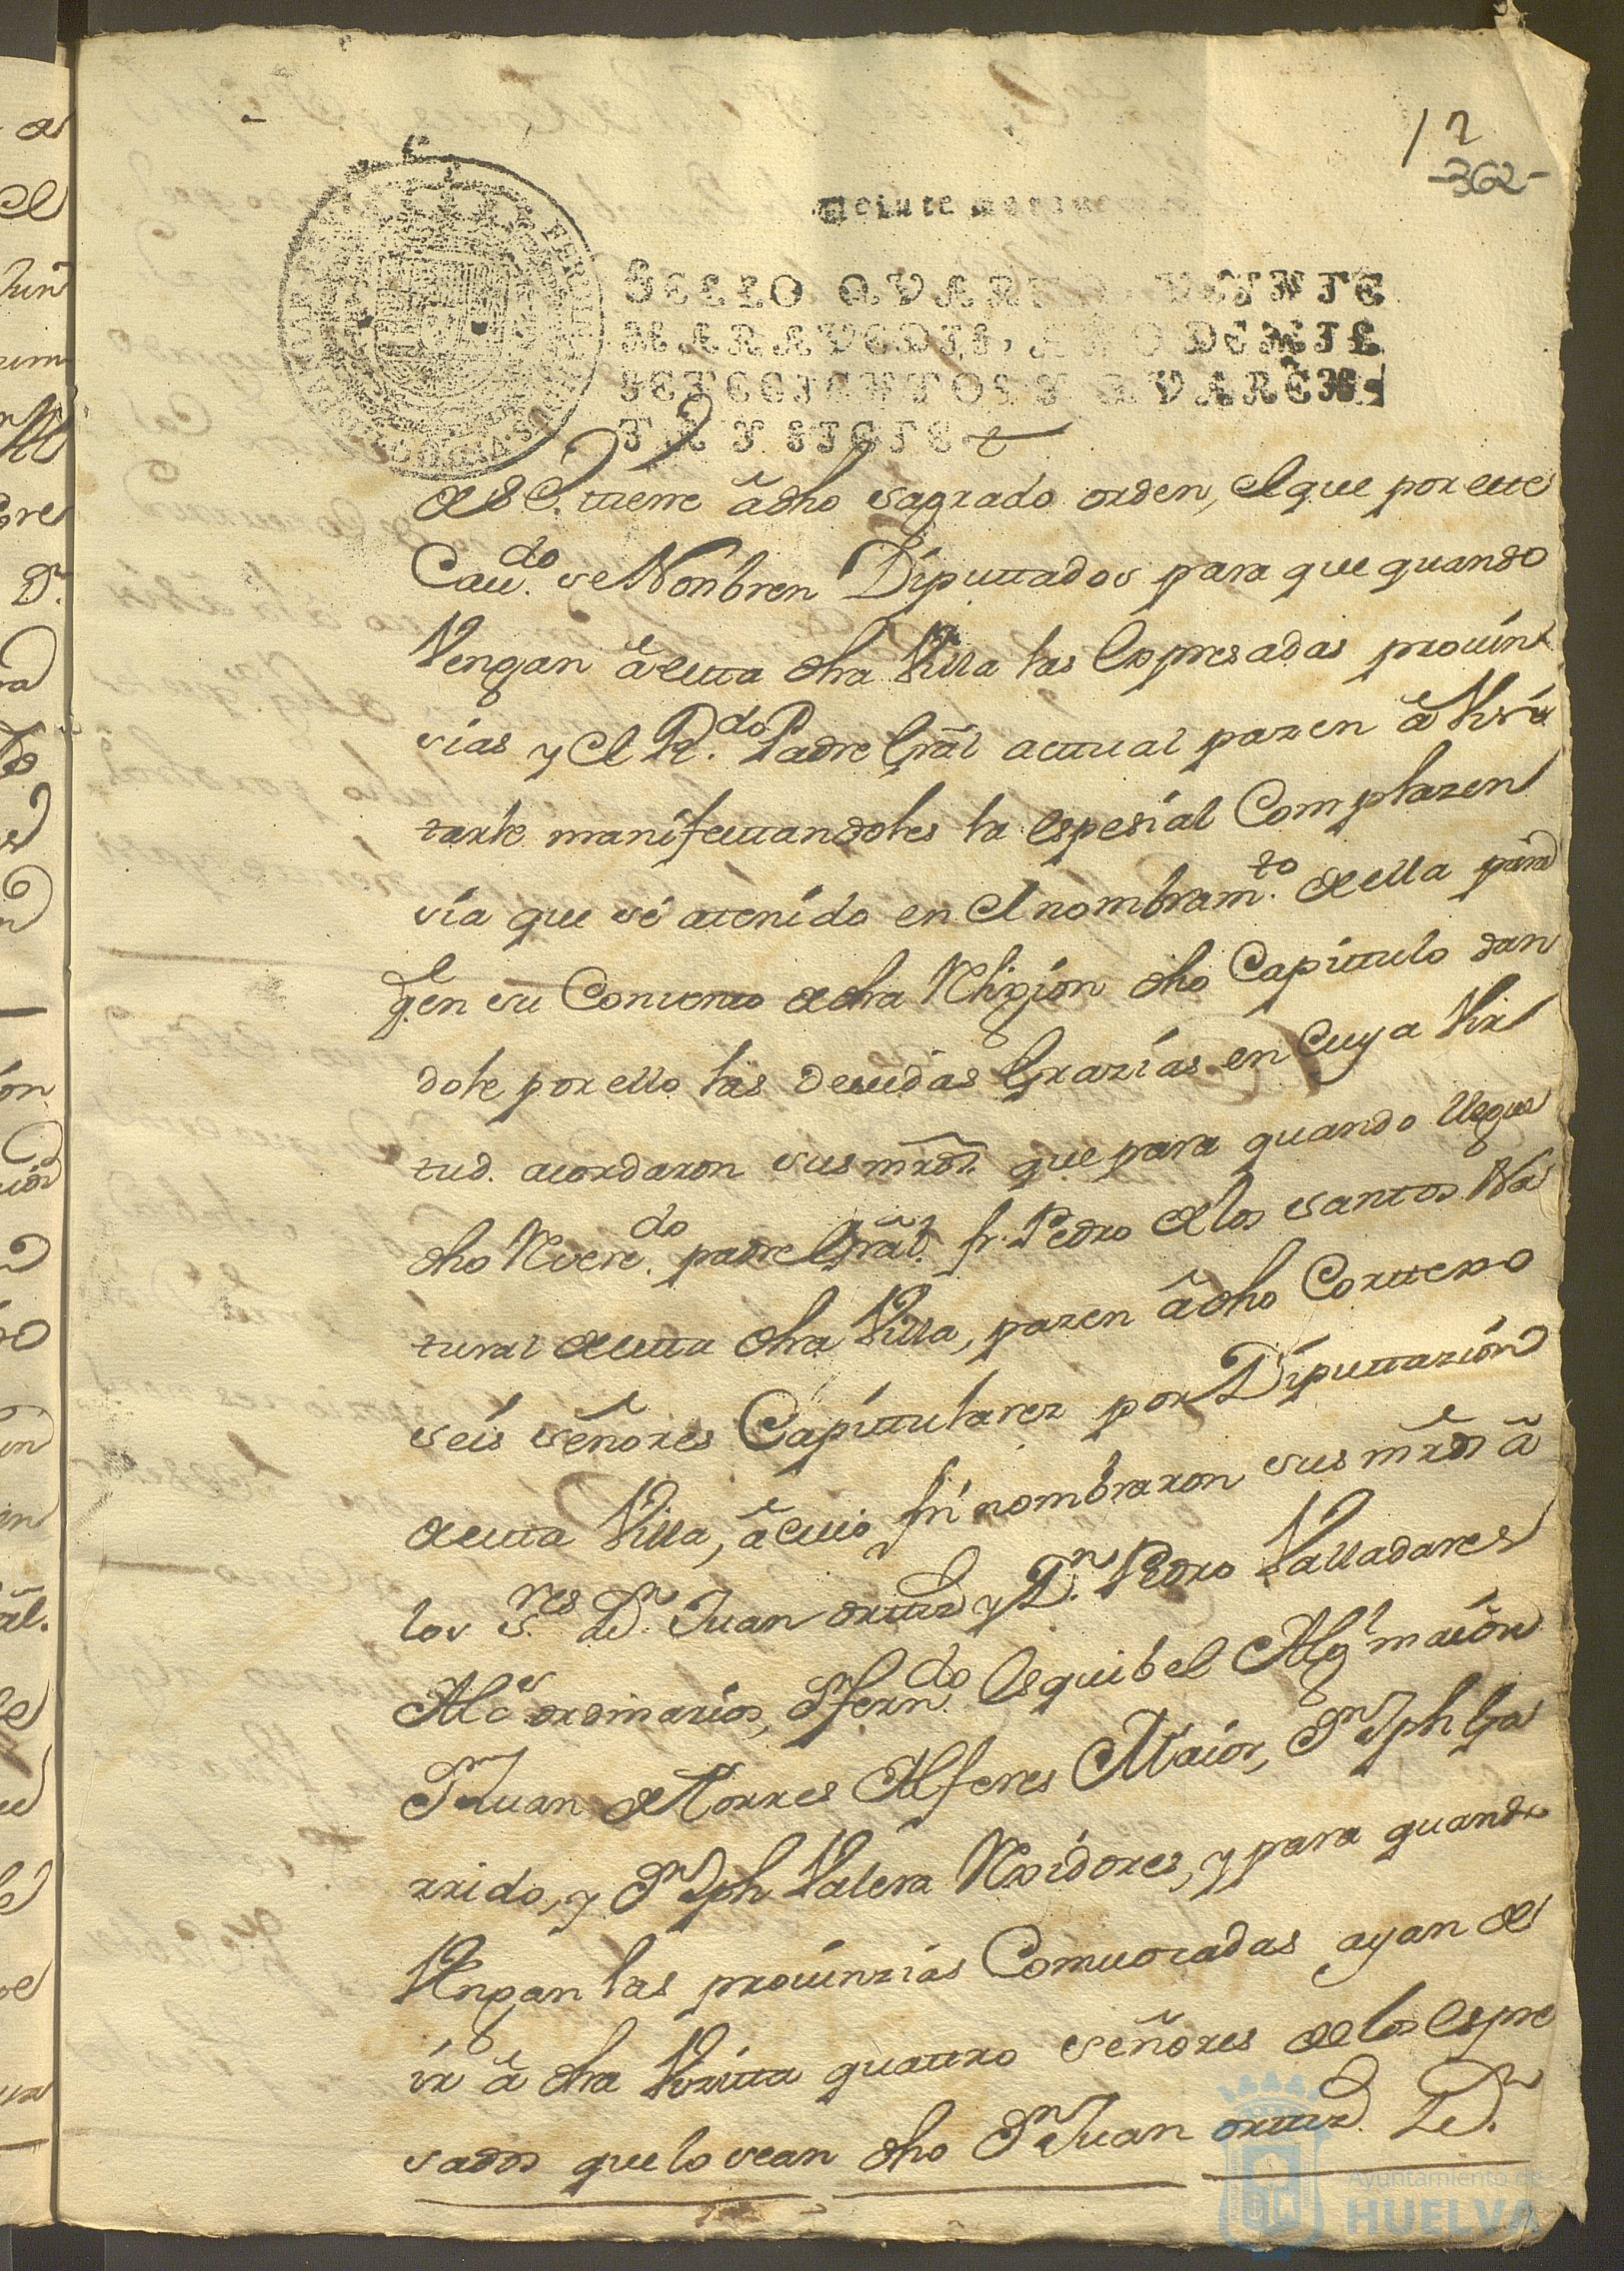 12
-362-
Veinte maravedis
SELLO QVARTO, VEINTE
MARAVEDIS, AÑO DE MIL
SETECIENTOS Y QVAREN-
TA Y SIETE
tiene â dho sagrado orden, el que por este
Cau.do se Nonbren Diputtados para que quando
Vengan â esta dha Villa las Expresadas provin
sias y el R.do Padre Gràl acttual pazen â Visi
tarle manifestandoles la espesial Complazen
sia que sè a tenido en el nombram.to de ella para
q.e en su Convento de dha Relixion dho Capittulo dan
dole por ello las devidas Grazias en Cuya Vir
tud. acordaron sus mrds. que para quando llegue
dho Revere.do padre Gràl. fr. Pedro de los santos Na
tural de esta dha Villa, pazen â dho Convento
seis señores Capittulares por Diputtazion
de esta Villa, â cuio fin nombraron sus mrds â
los S.res D.n Juan orttiz y D.n Pedro Valladares
Alc.s ordinarios, D.n Fern.do Esquibel Alg.l maior
D.n Juan de Torres Alferes Maior, D.n Jph Ga
rrido, y D.n Jph Valera Rexidores, y para quando
Vengan las provinzias Comvocadas ayan de
ir â dha Visitta quattro señores de los Espre
sados que lo sean dho D.n Juan orttiz. D.n
Ayuntamiento de
HUELVA